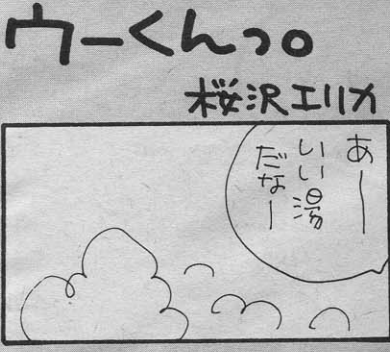 ウーくんっ。
桜沢エリカ
あー
いい湯
だなー